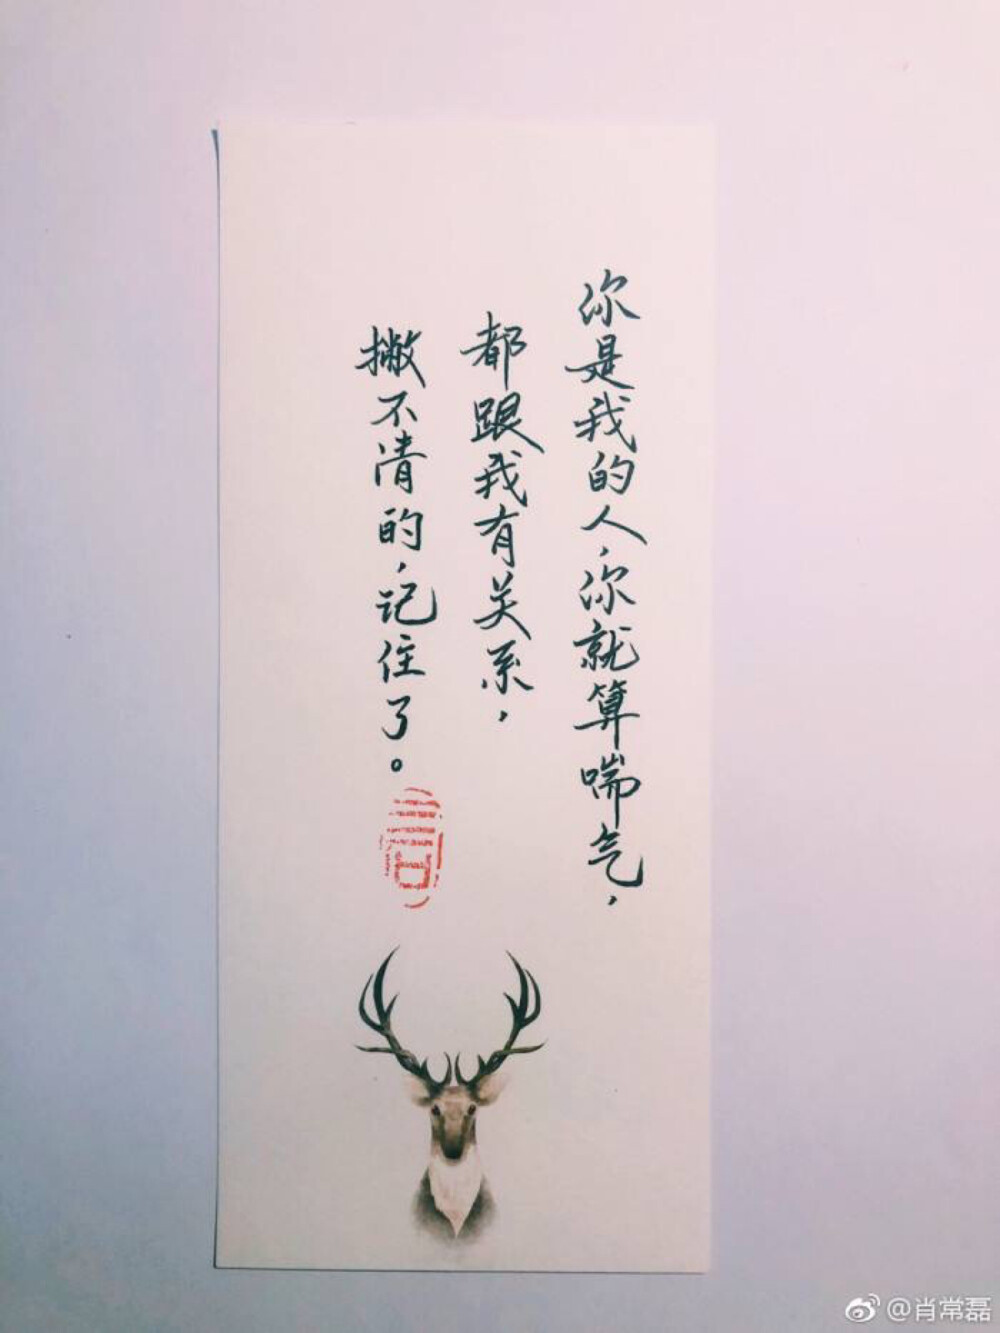 你是我的人，你就算喘气，
都跟我有关系，
撇不清的，记住了。
@肖常磊